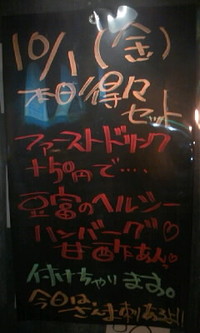 10/1(金)
本日!得々
セット
ファーストドリンク
+50円で‥‥
豆富のヘルシー
ハンバーグ♡
甘酢あん♡
付けちゃいます。
今日はさんま刺あるよ!!